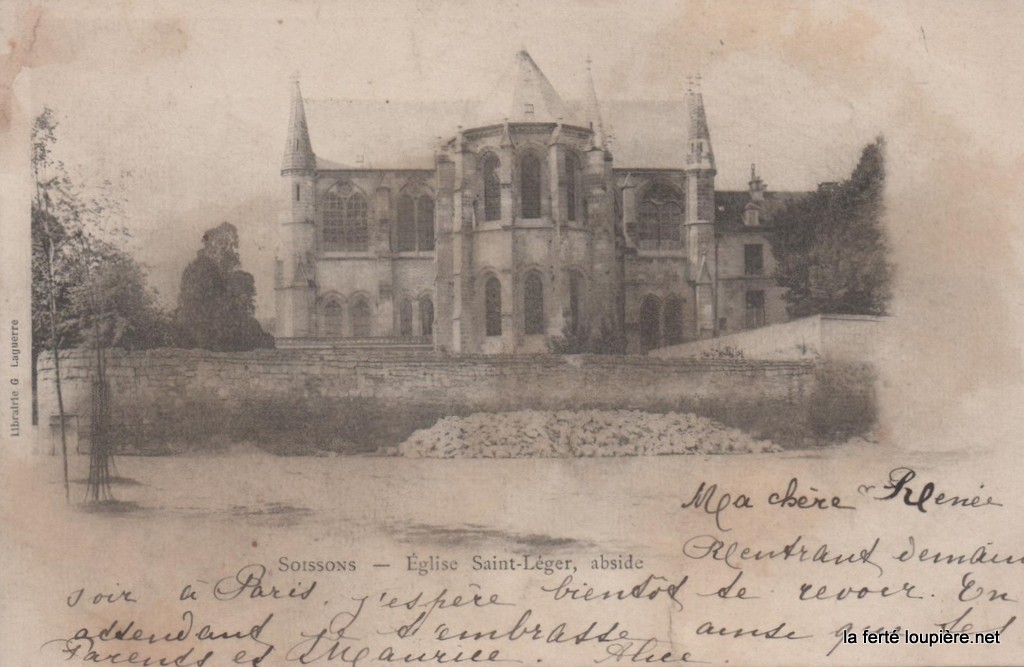 Librairie G Laguerre
SOISSONS — Église Saint-Léger, abside
Ma chère Renée
Rentrant demain
soir à Paris j'espère bientôt te revoir. En
attendant je t'embrasse ainsi que tes
Parents et Maurice. Alice
la ferté loupière.net